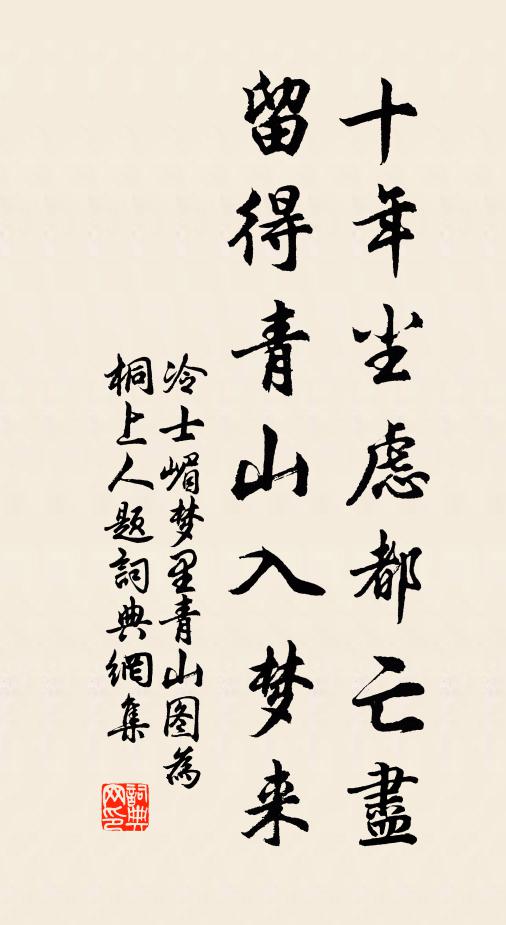 十年尘虑都亡盡
留得青山入梦来
冷士嵋梦里青山图為
桐上人题詞典網集
詞典网印